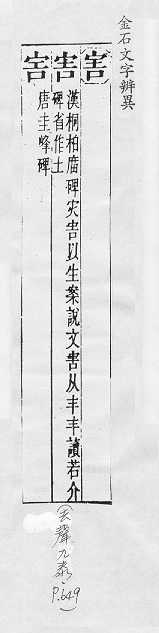 金石文字辨異
害
害 漢桐柏廟碑灾害以生案說文害从丰丰讀若介
碑省作土
害 唐圭峰碑
(去聲九泰，P.649)